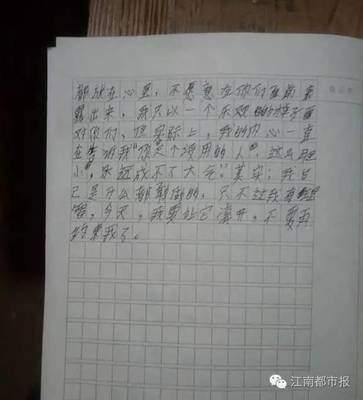 都放在心里，不愿意在你们面前表
露出来，我只以一个乐观的样子面
对你们，但实际上，我的内心一直
在告诉我“你是个没用的人”，这么胆
小，永远成不了大"其实，我自
己是什么都的，只不过我
。今天，我要让它离开，不要再
约束我了。
江南都市报